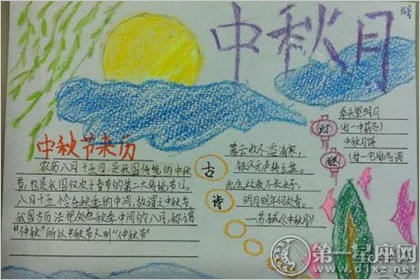 中秋月
中秋节来历
农历八月十五日,是我国传统的中秋
节,也是我国仅次于春节的第二大传统节日。
八月十五恰在秋季的中间,故谓之中秋节。
我国古历法把处在秋季中间的八月,称谓
“仲秋”所以中秋节又叫“仲秋节”
古
诗
暮云收尽溢清寒,
银汉无声转玉盘。
此生此夜不长好,
明月明年何处看。
——苏轼《中秋月》
灯
谜
举头望明月
(打一中药名)
中秋月饼
(打一电脑名词)
第一星座网
www.d1xz.net